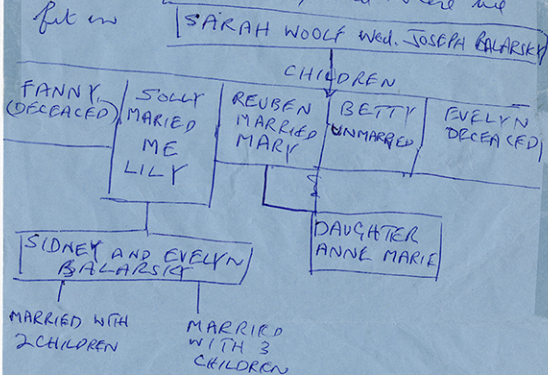 put in
SARAH WOOLF Wed. JOSEPH BALARSKY
CHILDREN
FANNY
(DECEASED)
SOLLY
MARIED
ME
LILY
REUBEN
MARRIED
MARY
BETTY
UNMARRIED
EVELYN
DECEASED
DAUGHTER
ANNE MARIE
SIDNEY AND EVELYN
BALARSKY
MARRIED WITH
2 CHILDREN
MARRIED
WITH 3
CHILDREN